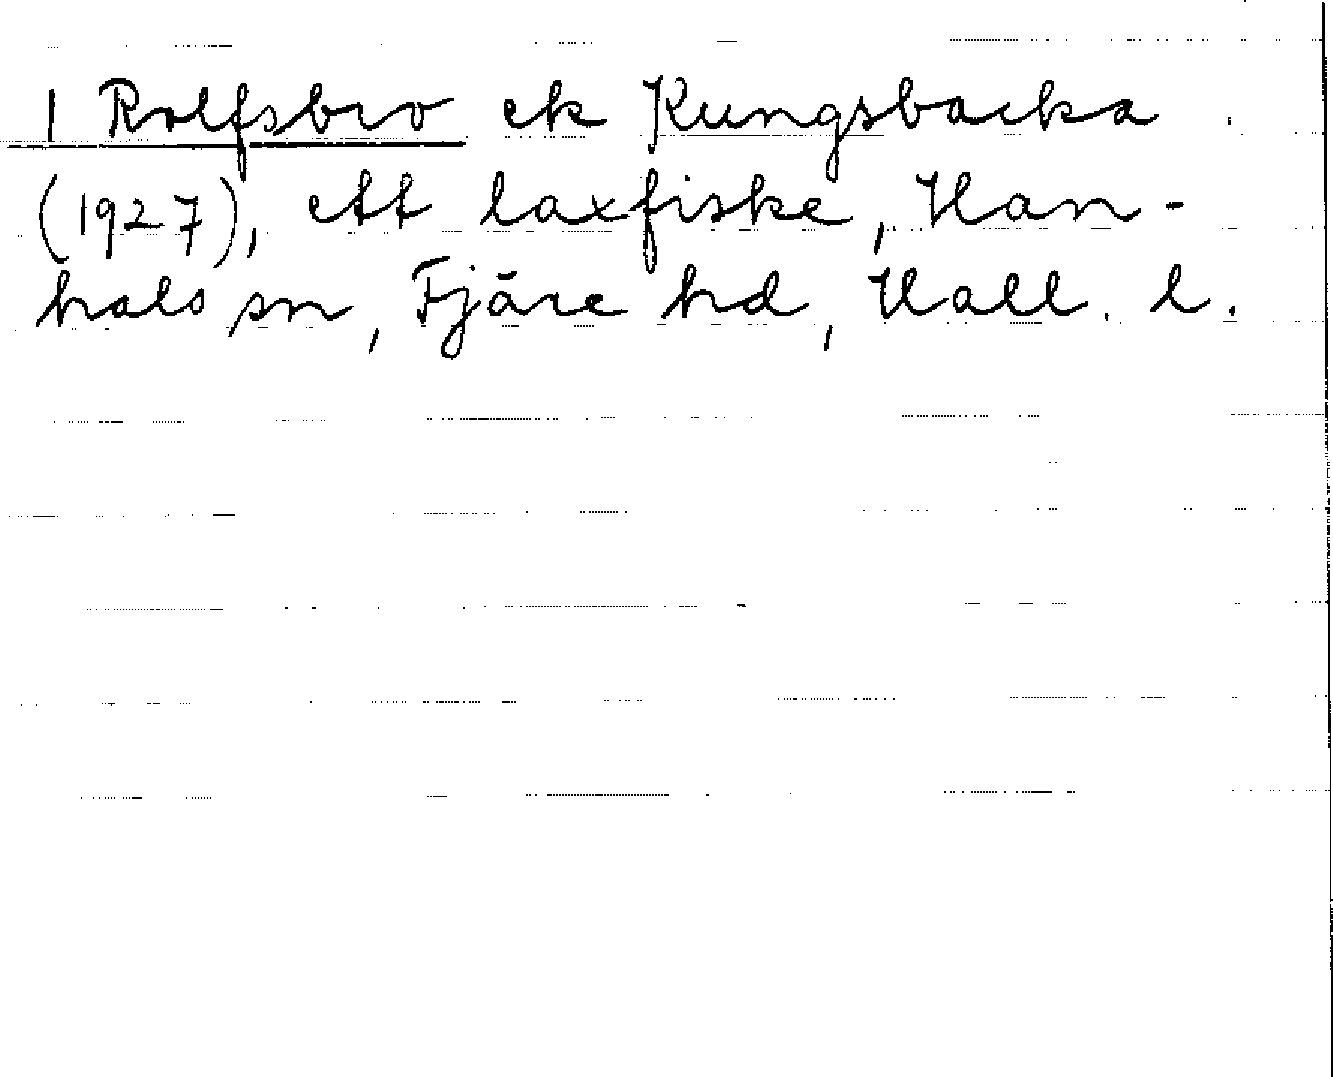 1 Rolfsbro ek Kungsbacka
(1927), ett laxfiske, Han-
hals sn, Fjäre hd, Hall. l.